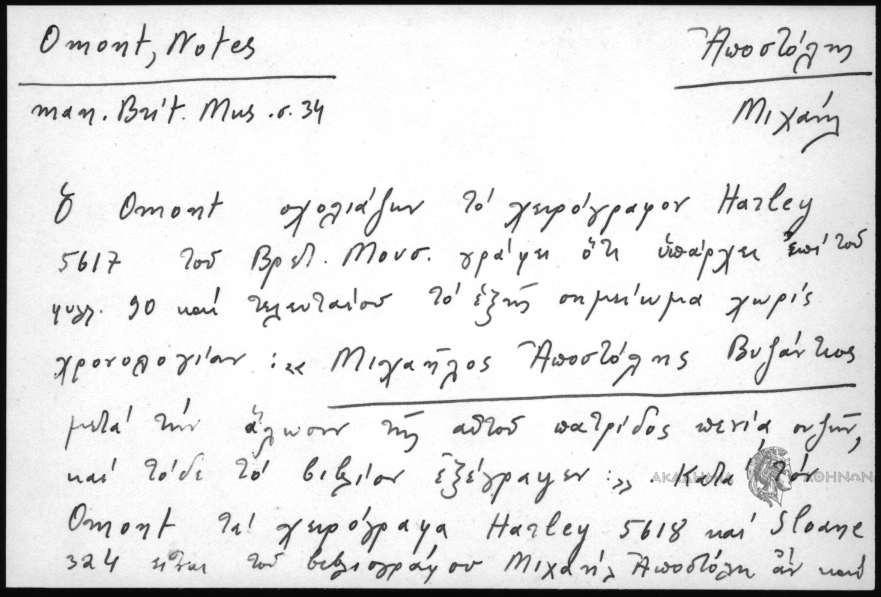 Omont, Notes
Ἀποστόλης
man. Brit. Mus. σ. 34
Μιχαήλ
Ὁ Omont σχολιάζων τό χειρόγραφον Harley
5617 τοῦ Βρετ. Μουσ. γράφει ὅτι ὑπάρχει ἐπί τοῦ
φυλ. 90 καί τελευταίου τό ἑξῆς σημείωμα χωρίς
χρονολογίαν : « Μιχαῆλος Ἀποστόλης Βυζάντιος
μετά τήν ἅλωσιν τῆς αὑτοῦ πατρίδος πενίᾳ συζῶν,
καί τόδε τό βιβλίον ἐξέγραψεν : » . Κατά τόν
ΑΚΑΔΗΜΙΑ ΑΘΗΝΩΝ
Omont τά χειρόγραφα Harley 5618 καί Sloane
324 εἶναι τοῦ βιβλιογράφου Μιχαήλ Ἀποστόλη ἄν καί